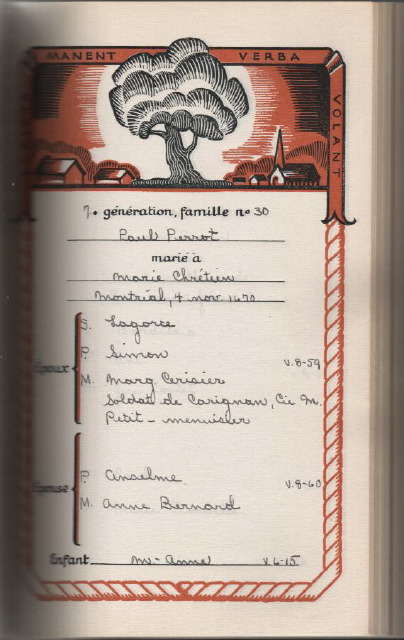 MANENT
VERBA
VOLANT
7. génération, famille nº 30
Paul Perrot
marié à
Marie Chrétien
Montréal, 4 nov 1670
S. Lagorce
P. Simon
V.8-59
Epoux
M. Marg Cerisier
Soldat de Carignan, Cie M.
Petit - menuisier
P. Anselme
V.8-60
Epouse
M. Anne Bernard
Enfant M-Anne V6-15